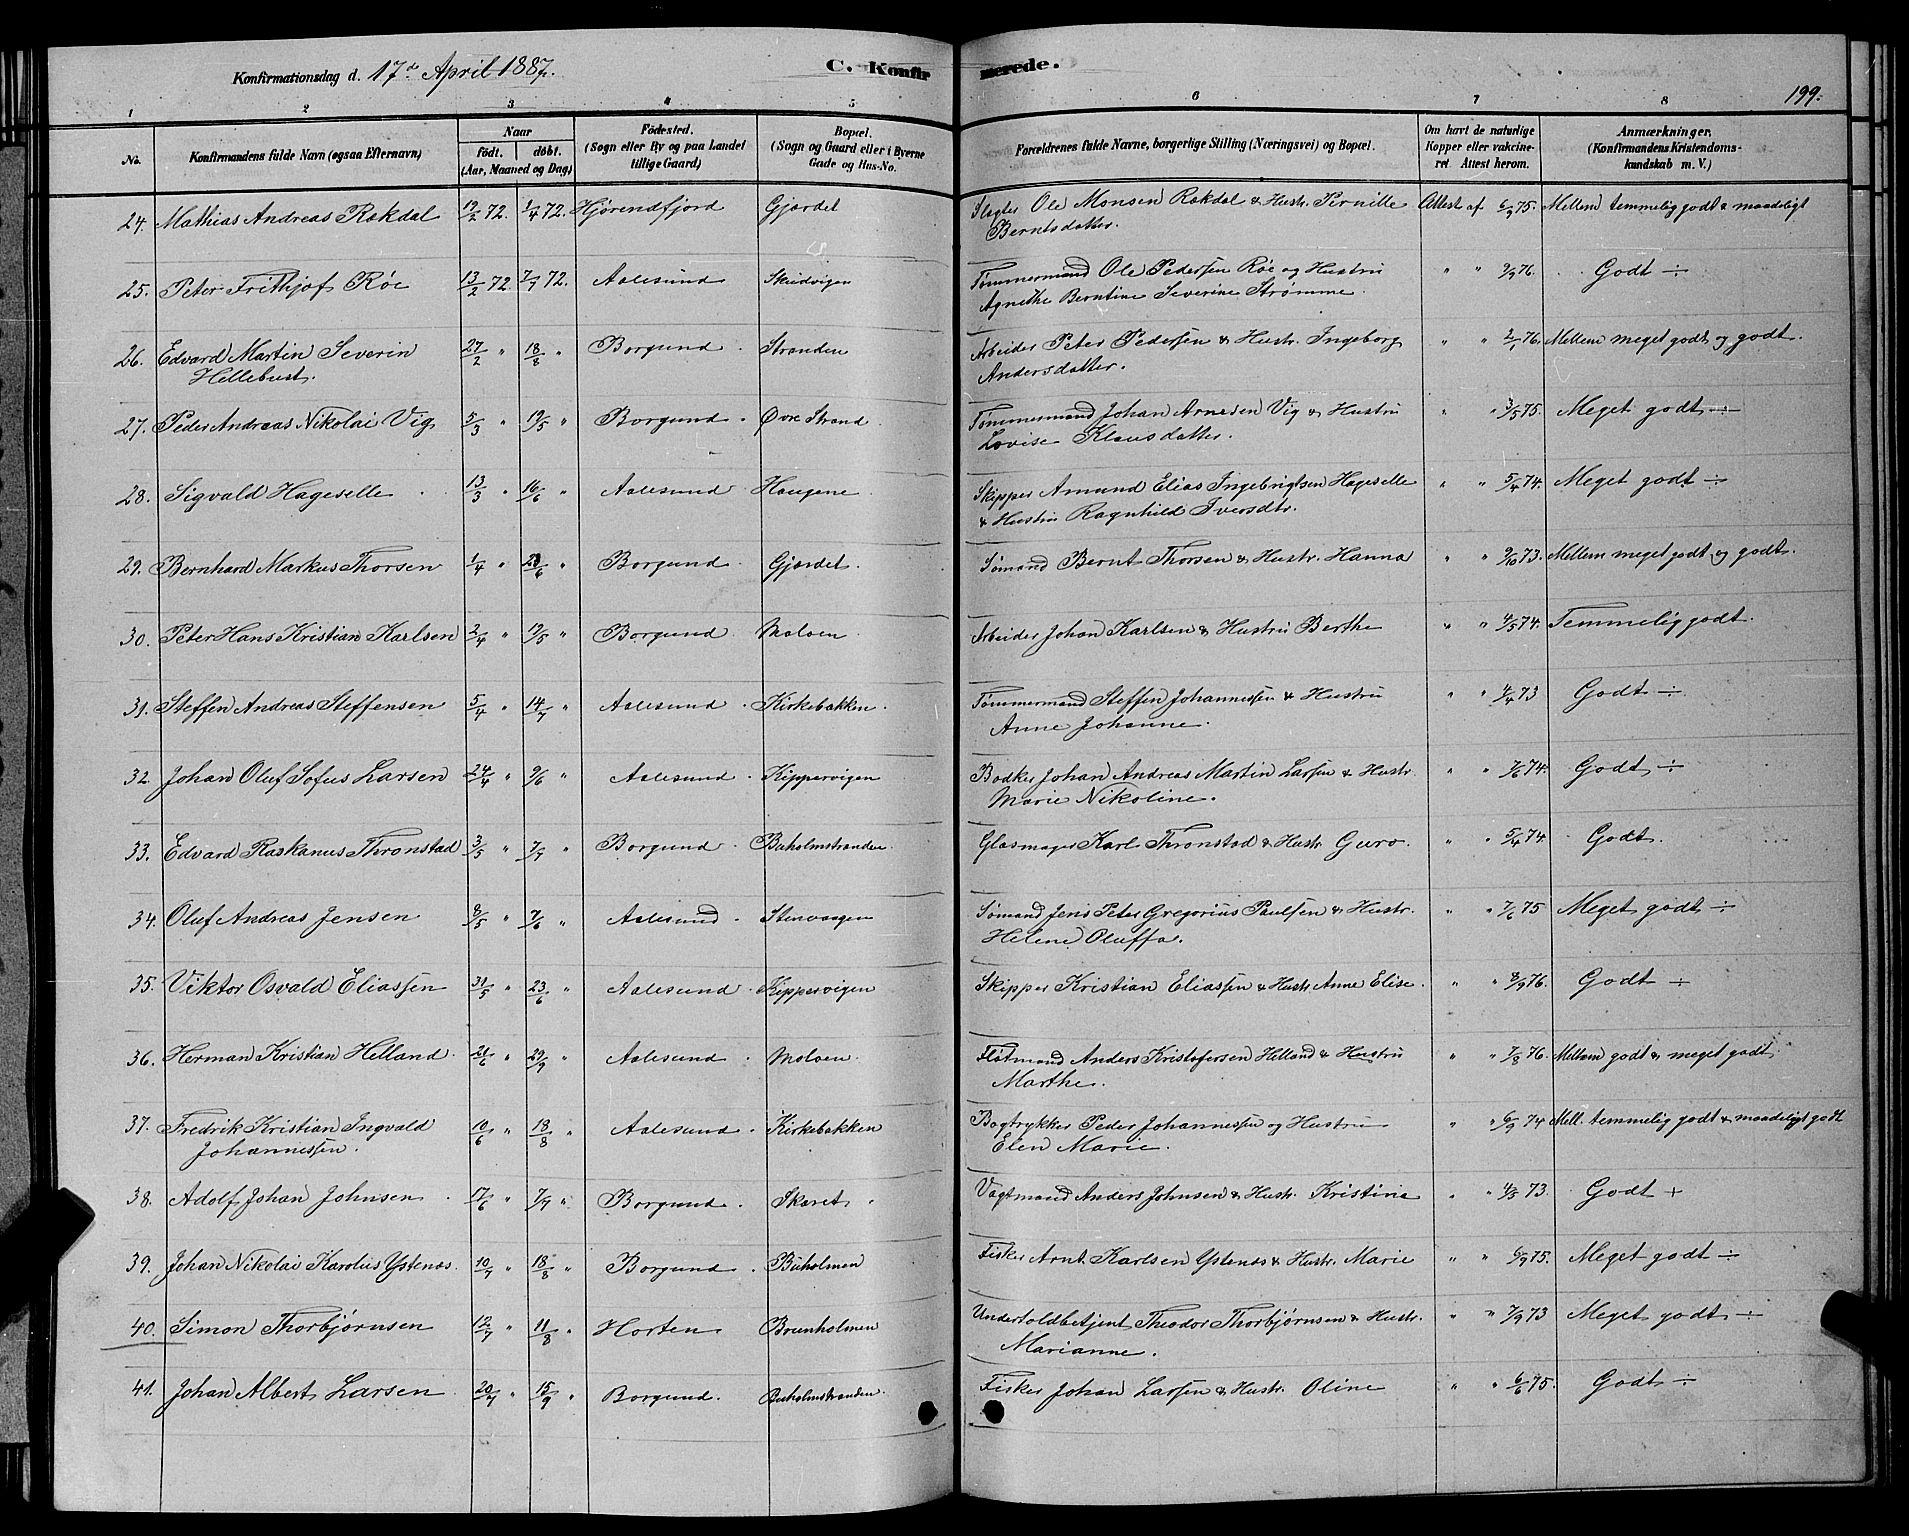 Konfirmationsdag d. 17de April 1887. C. Konfirmerede. 199.
1 2 3 4 5 6 7 8
No. Konfirmandens fulde Navn (ogsaa Efternavn) Naar født. døbt. (Aar, Maaned og Dag) Fødested. (Sogn eller By og paa Landet tillige Gaard) Bopæl. (Sogn og Gaard eller i Byerne Gade og Hus-No. Forældrenes fulde Navne, borgerlige Stilling (Næringsvei) og Bopæl. Om havt de naturlige Kopper eller vakcineret. Attest herom. Anmærkninger, (Konfirmandens Kristendomskundskab m. V.)
24. Mathias Andreas Rakdal 19/2 72. 1/4 72. Hjørendfjord Gjerdet Slagter Ole Monsen Rakdal & Hustr. Pernille Attest af 6/9 75. Mellem temmelig godt & maadeligt
Berntsdatter.
25. Peter Frithjof Røe 13/2 72. 7/7 72. Aalesund Skudvigen Tømmermand Ole Pedersen Røe og Hustru " " 9/9 76. Godt ÷
Agnethe Berntine Severine Strømme.
26. Edvard Martin Severin 27/2 " 18/8 " Borgund Stranden Arbeider Peter Pedersen & Hustr. Ingeborg " " 2/1 76. Mellem meget godt og godt.
Hellebust. Andersdatter.
27. Peder Andreas Nikolai Vig 5/3 " 19/5 " Borgund Øvre Strand Tømmermand Johan Arnesen Vig & Hustru " " 3/5 75. Meget godt ÷
Lovise Klausdatter.
28. Sigvald Hageselle 13/3 " 16/6 " Aalesund Haugene Skipper Amund Elias Ingebrigtsen Hageselle " " 5/4 74. Meget godt ÷
& Hustru Ragnhild Iversdtr.
29. Bernhard Markus Thorsen 1/4 " 23/6 " Borgund Gjerdet. Sømand Bernt Thorsen & Hustr. Hanna " " 9/10 73. Mellem meget godt og godt.
30. Peter Hans Kristian Karlsen 2/4 " 19/5 " Borgund Moloen Arbeider Johan Karlsen & Hustru Berthe " " 4/5 74. Temmelig godt.
31. Steffen Andreas Steffensen 5/4 " 14/7 " Aalesund Kirkebakken Tømmermand Steffen Johannessen & Hustru " " 4/4 73 Godt ÷
Anne Johanne.
32. Johan Oluf Sofus Larsen 24/4 " 9/6 " Aalesund Kippervigen Bødker Johan Andreas Martin Larsen & Hustr. " " 7/6 74. Godt ÷
Marie Nikoline.
33. Edvard Raskanus Thronstad 3/5 " 7/7 " Borgund Buholmstranden Glasmager Karl Thronstad & Hustr. Guro. " " 5/4 74. Godt.
34. Oluf Andreas Jensen 8/5 " 7/6 " Aalesund Stenvaagen Sømand Jens Peter Gregorius Paulsen & Hustr. " " 7/6 75 Meget godt ÷
Helene Oluffa.
35. Viktor Osvald Eliassen 31/5 " 23/6 " Aalesund Kippervigen Skipper Kristian Eliassen & Hustr. Anne Elise. " " 8/9 76. Godt ÷
36. Herman Kristian Helland 21/6 " 29/9 " Aalesund Moloen Flatmand Anders Kristofersen Helland & Hustru " " 7/8 76. Mellem godt & meget godt
Marthe.
37. Fredrik Kristian Ingvald 10/6 " 18/8 " Aalesund Kirkebakken Bogtrykker Peder Johannessen og Hustru " 6/9 74 Mell. temmelig godt & maadeligt godt
Johannessen. Elen Marie.
38. Adolf Johan Johnsen 17/6 " 7/7 " Borgund Skaret Vagtmand Anders Johnsen & Hustr. Kristine " " 4/5 73. Godt +
39. Johan Nikolai Karolus Ystenes 10/7 " 18/8 " Borgund Buholmen Fisker Arnt Karlsen Ystenes & Hustr. Marie " " 6/9 75. Meget godt ÷
40. Simon Thorbjørnsen 12/7 " 11/8 " Horten Brunholmen Undertoldbetjent Theodor Thorbjørnsen & Hustr. " " 7/9 73 Meget godt ÷
Marianne.
41. Johan Albert Larsen 20/7 " 15/9 " Borgund. Buholmstranden. Fisker Johan Larsen & Hustr. Oline " " 6/6 75. Godt ÷